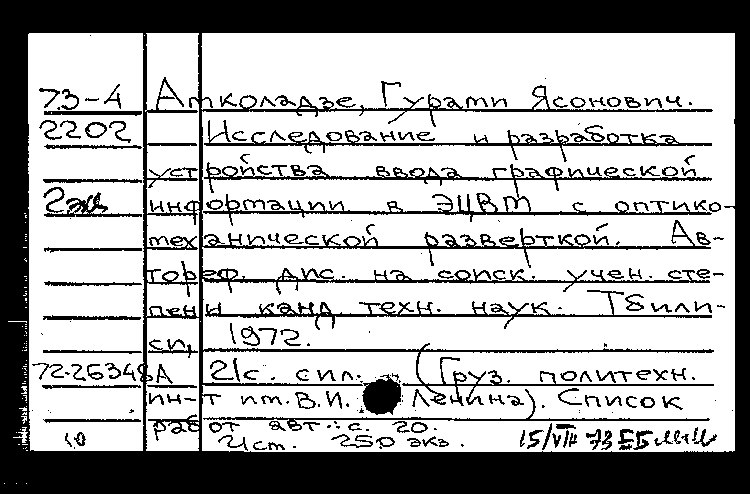 73-4 Атколадзе, Гурами Ясонович.
2202 Исследование и разработка
устройства ввода графической
2 экз информации в ЭЦВМ с оптико-
механической разверткой. Ав-
тореф. дис. на соиск. учен. сте-
пени канд. техн. наук. Тбили-
си, 1972.
72-26348А 21с. с ил. (Груз. политехн.
ин-т им. В.И. Ленина). Список
работ авт.: с. 20.
10 Ист. 250 экз. 15/VIII 73